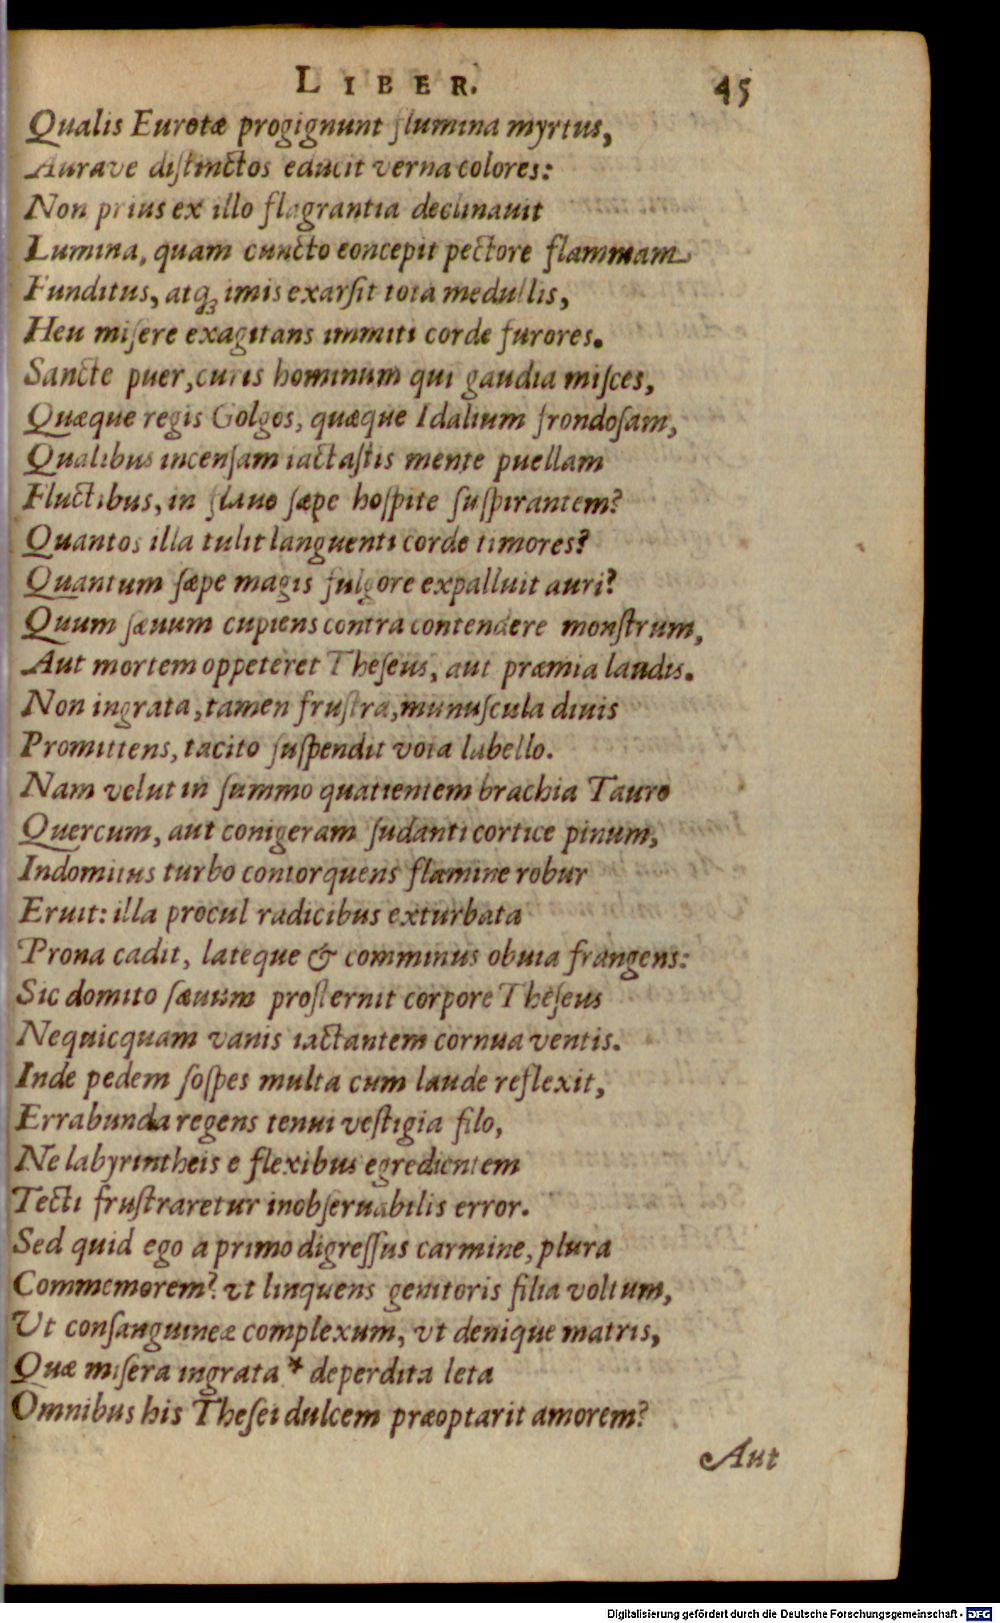 LIBER. 45
Qualis Eurotæ progignunt flumina myrtus,
Aurave distinctos educit verna colores:
Non prius ex illo flagrantia declinavit
Lumina, quam cuncto eoncepit pectore flammam
Funditus, atq; imis exarsit tota medullis,
Heu misere exagitans immiti corde furores.
Sancte puer, curis hominum qui gaudia misces,
Quæque regis Golgos, quæque Idalium frondosam,
Qualibus incensam iactastis mente puellam
Fluctibus, in flavo sæpe hospite suspirantem?
Quantos illa tulit languenti corde timores?
Quantum sæpe magis fulgore expalluit auri?
Quum sævum cupiens contra contendere monstrum,
Aut mortem oppeteret Theseus, aut præmia laudis.
Non ingrata, tamen frustra, munuscula divis
Promittens, tacito suspendit vota labello.
Nam velut in summo quatientem brachia Tauro
Quercum, aut conigeram sudanti cortice pinum,
Indomitus turbo contorquens flamine robur
Eruit: illa procul radicibus exturbata
Prona cadit, lateque & comminus obvia frangens:
Sic domito sævum prosternit corpore Theseus
Nequicquam vanis iactantem cornua ventis.
Inde pedem sospes multa cum laude reflexit,
Errabunda regens tenui vestigia filo,
Ne labyrintheis e flexibus egredientem
Tecti frustraretur inobservabilis error.
Sed quid ego a primo digressus carmine, plura
Commemorem? ut linquens genitoris filia voltum,
Ut consanguineæ complexum, vt denique matris,
Quæ misera ingrata * deperdita leta
Omnibus his Thesei dulcem præoptarit amorem?
Aut
Digitalisierung gefördert durch die Deutsche Forschungsgemeinschaft - DFG